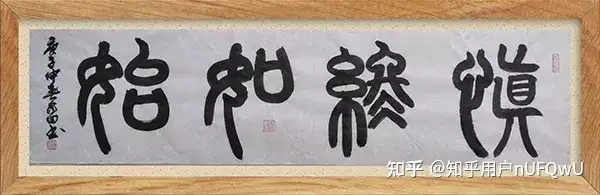 慎終如始
庚子仲春
知乎 @知乎用户nUFQwU